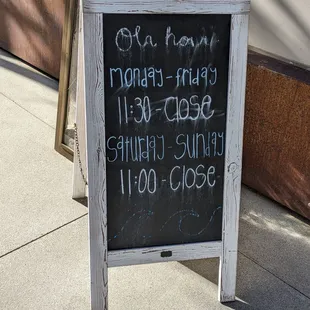 Ola hours
monday - friday
11:30 - Close
Saturday - Sunday
11:00 - Close